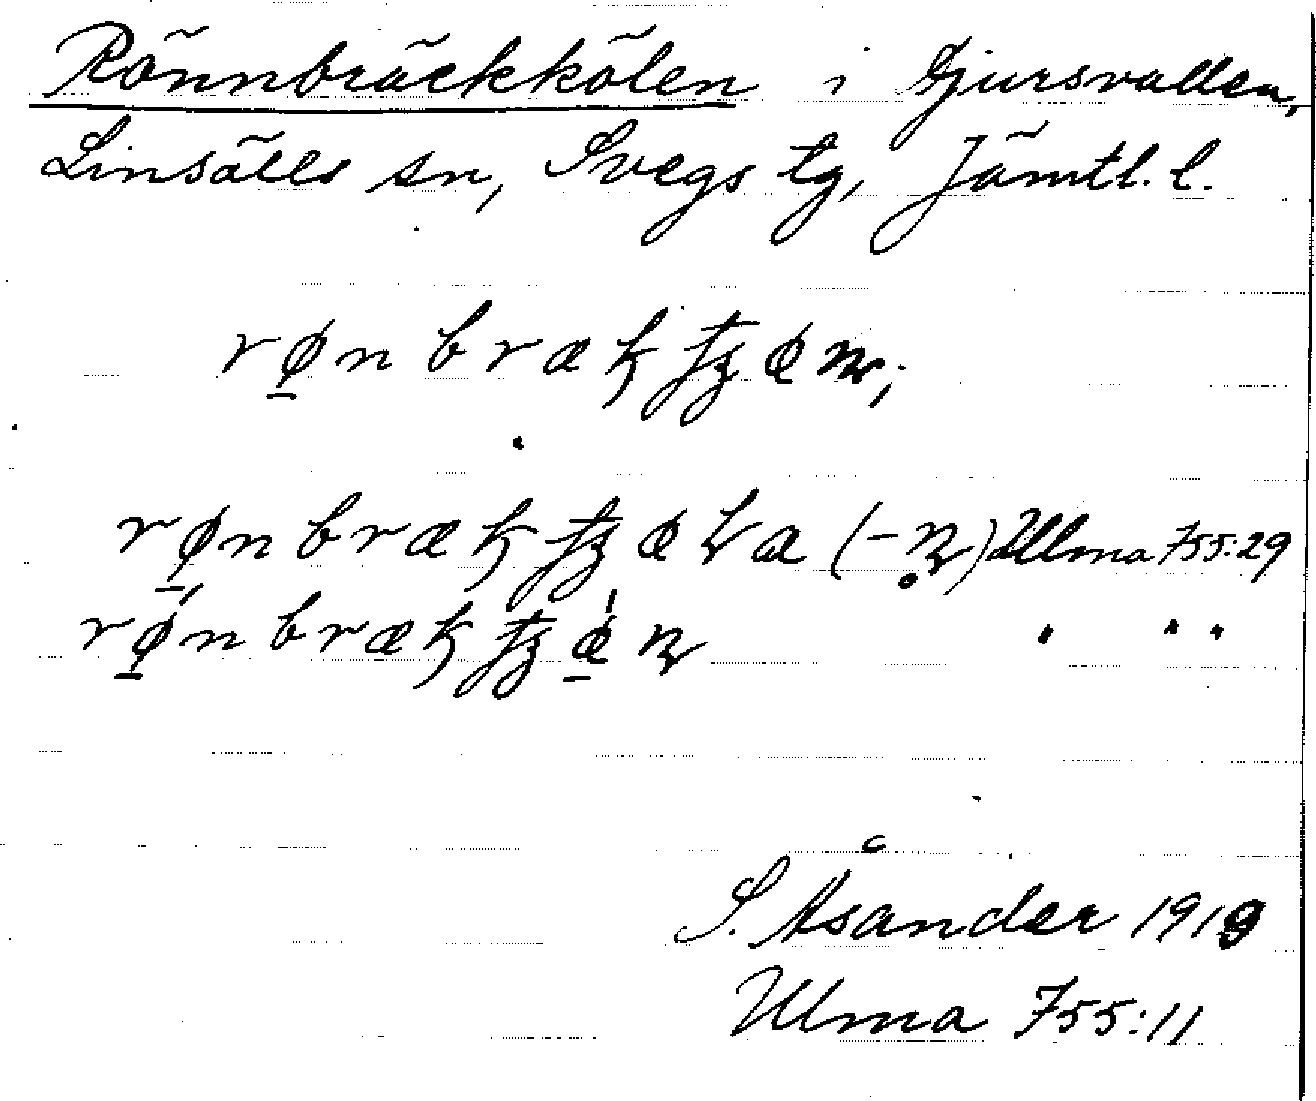 Rönnbräckkölen i Gjursvallen,
Linsälls sn, Svegs tg, Jämtl. l.
rø̱n bræk
rø̱nbræk (-) Ulma 755:29
rø̱nbræk
S. Åsander 1919
Ulma 755:11